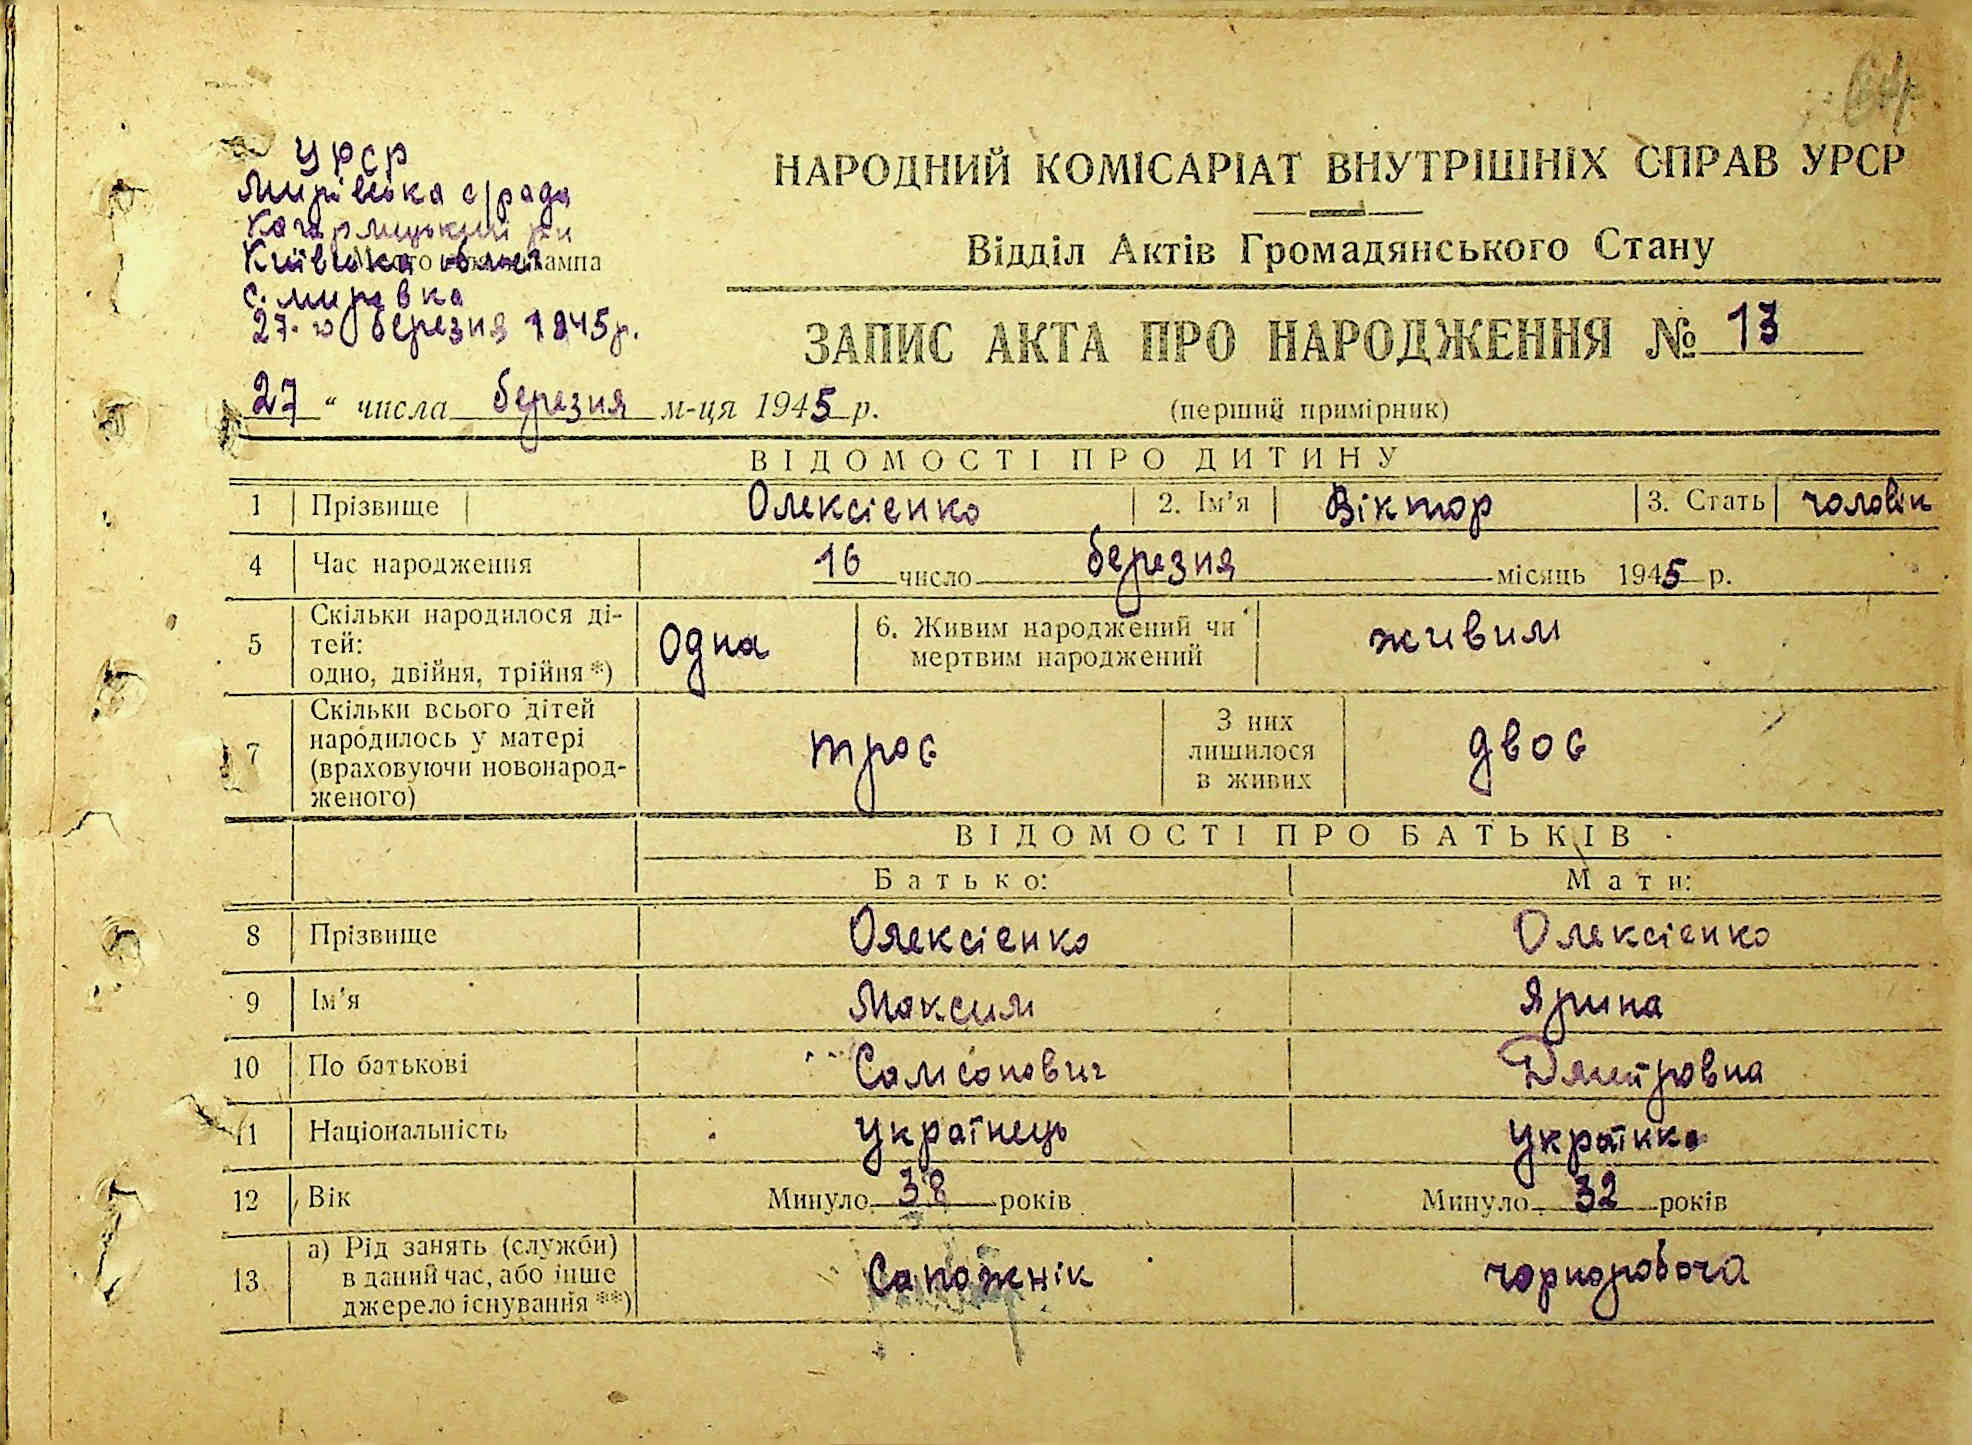 УРСР
Мирівська с/рада
Кагарлицький р-н
Київська област
с. Мирівка
27-го березня 1945 р.
НАРОДНИЙ КОМІСАРІАТ ВНУТРІШНІХ СПРАВ УРСР
Відділ Актів Громадянського Стану
ЗАПИС АКТА ПРО НАРОДЖЕННЯ № 13
27 “ числа березня м-ця 1945 р.
(перший примірник)
ВІДОМОСТІ ПРО ДИТИНУ
1 Прізвище Олексієнко 2. Ім'я Віктор 3. Стать чоловік
4 Час народження 16 число березня місяць 1945 р.
5 Скільки народилося ді-
тей:
одно, двійня, трійня *) Одна
6. Живим народжений чи
мертвим народжений живим
7 Скільки всього дітей
народилось у матері
(враховуючи новонарод-
женого) троє
З них
лишилося
в живих двоє
ВІДОМОСТІ ПРО БАТЬКІВ
Батько: Мати:
8 Прізвище Олексієнко Олексієнко
9 Ім'я Максим Ярина
10 По батькові Самсонович Дмитровна
11 Національність Українець Українка
12 Вік Минуло 38 років Минуло 32 років
13. а) Рід занять (служби)
в даний час, або інше
джерело існування **) Сапожнік чорноробоча